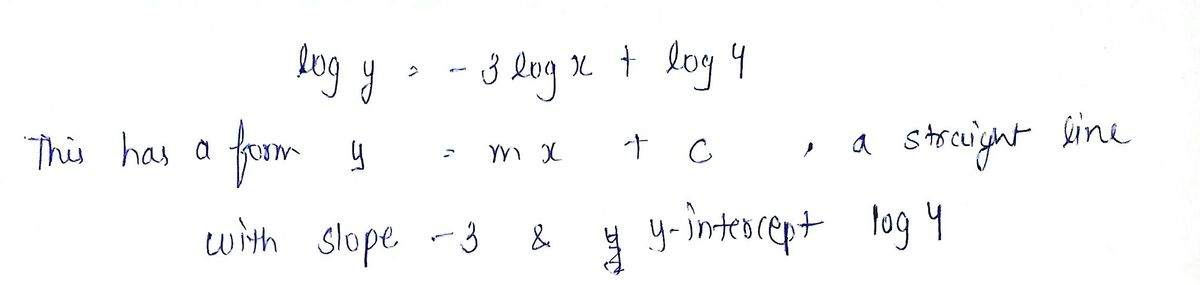 log y = - 3 log x + log 4
This has a form y = m x + c , a straight line
with slope - 3 & y-intercept log 4